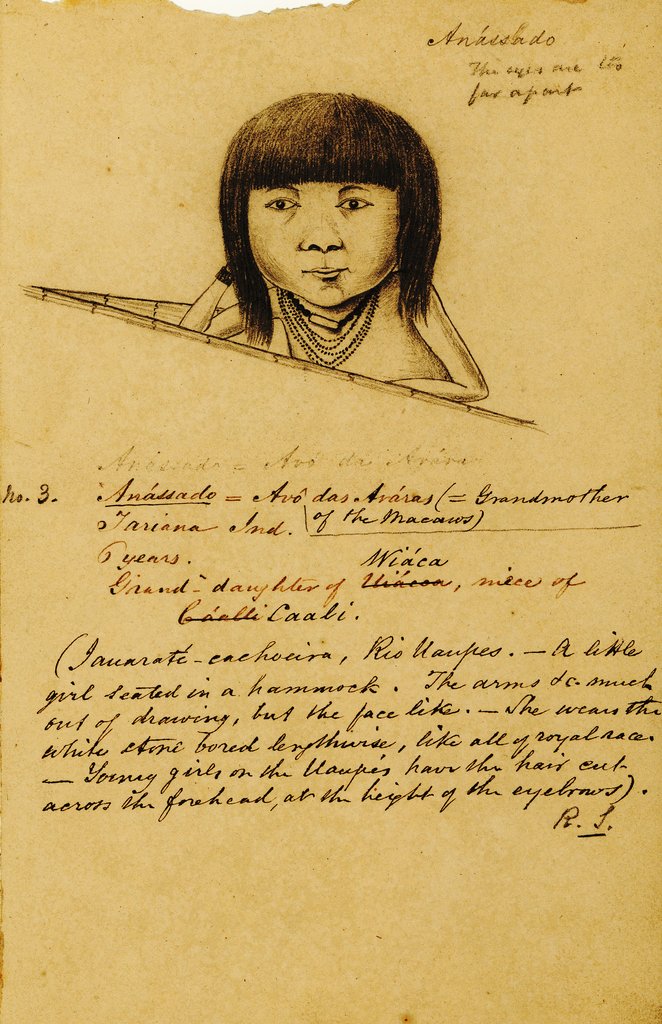 Anássado
The eyes are too
far apart
Anássado = Avó da Arára
No. 3. Anássado = Avó das Aráras (= Grandmother
Tariana Ind. of the Macaws)
6 years.
Wiáca
Grand-daughter of Uiácca, niece of
Cáalli Caali.
(Jauaraté-cachoeira, Rio Uaupés. — A little
girl seated in a hammock. The arms &c. much
out of drawing, but the face like. — She wears the
white stone bored lengthwise, like all of royal race.
— Young girls on the Uaupés have the hair cut
across the forehead, at the height of the eyebrows).
R. S.